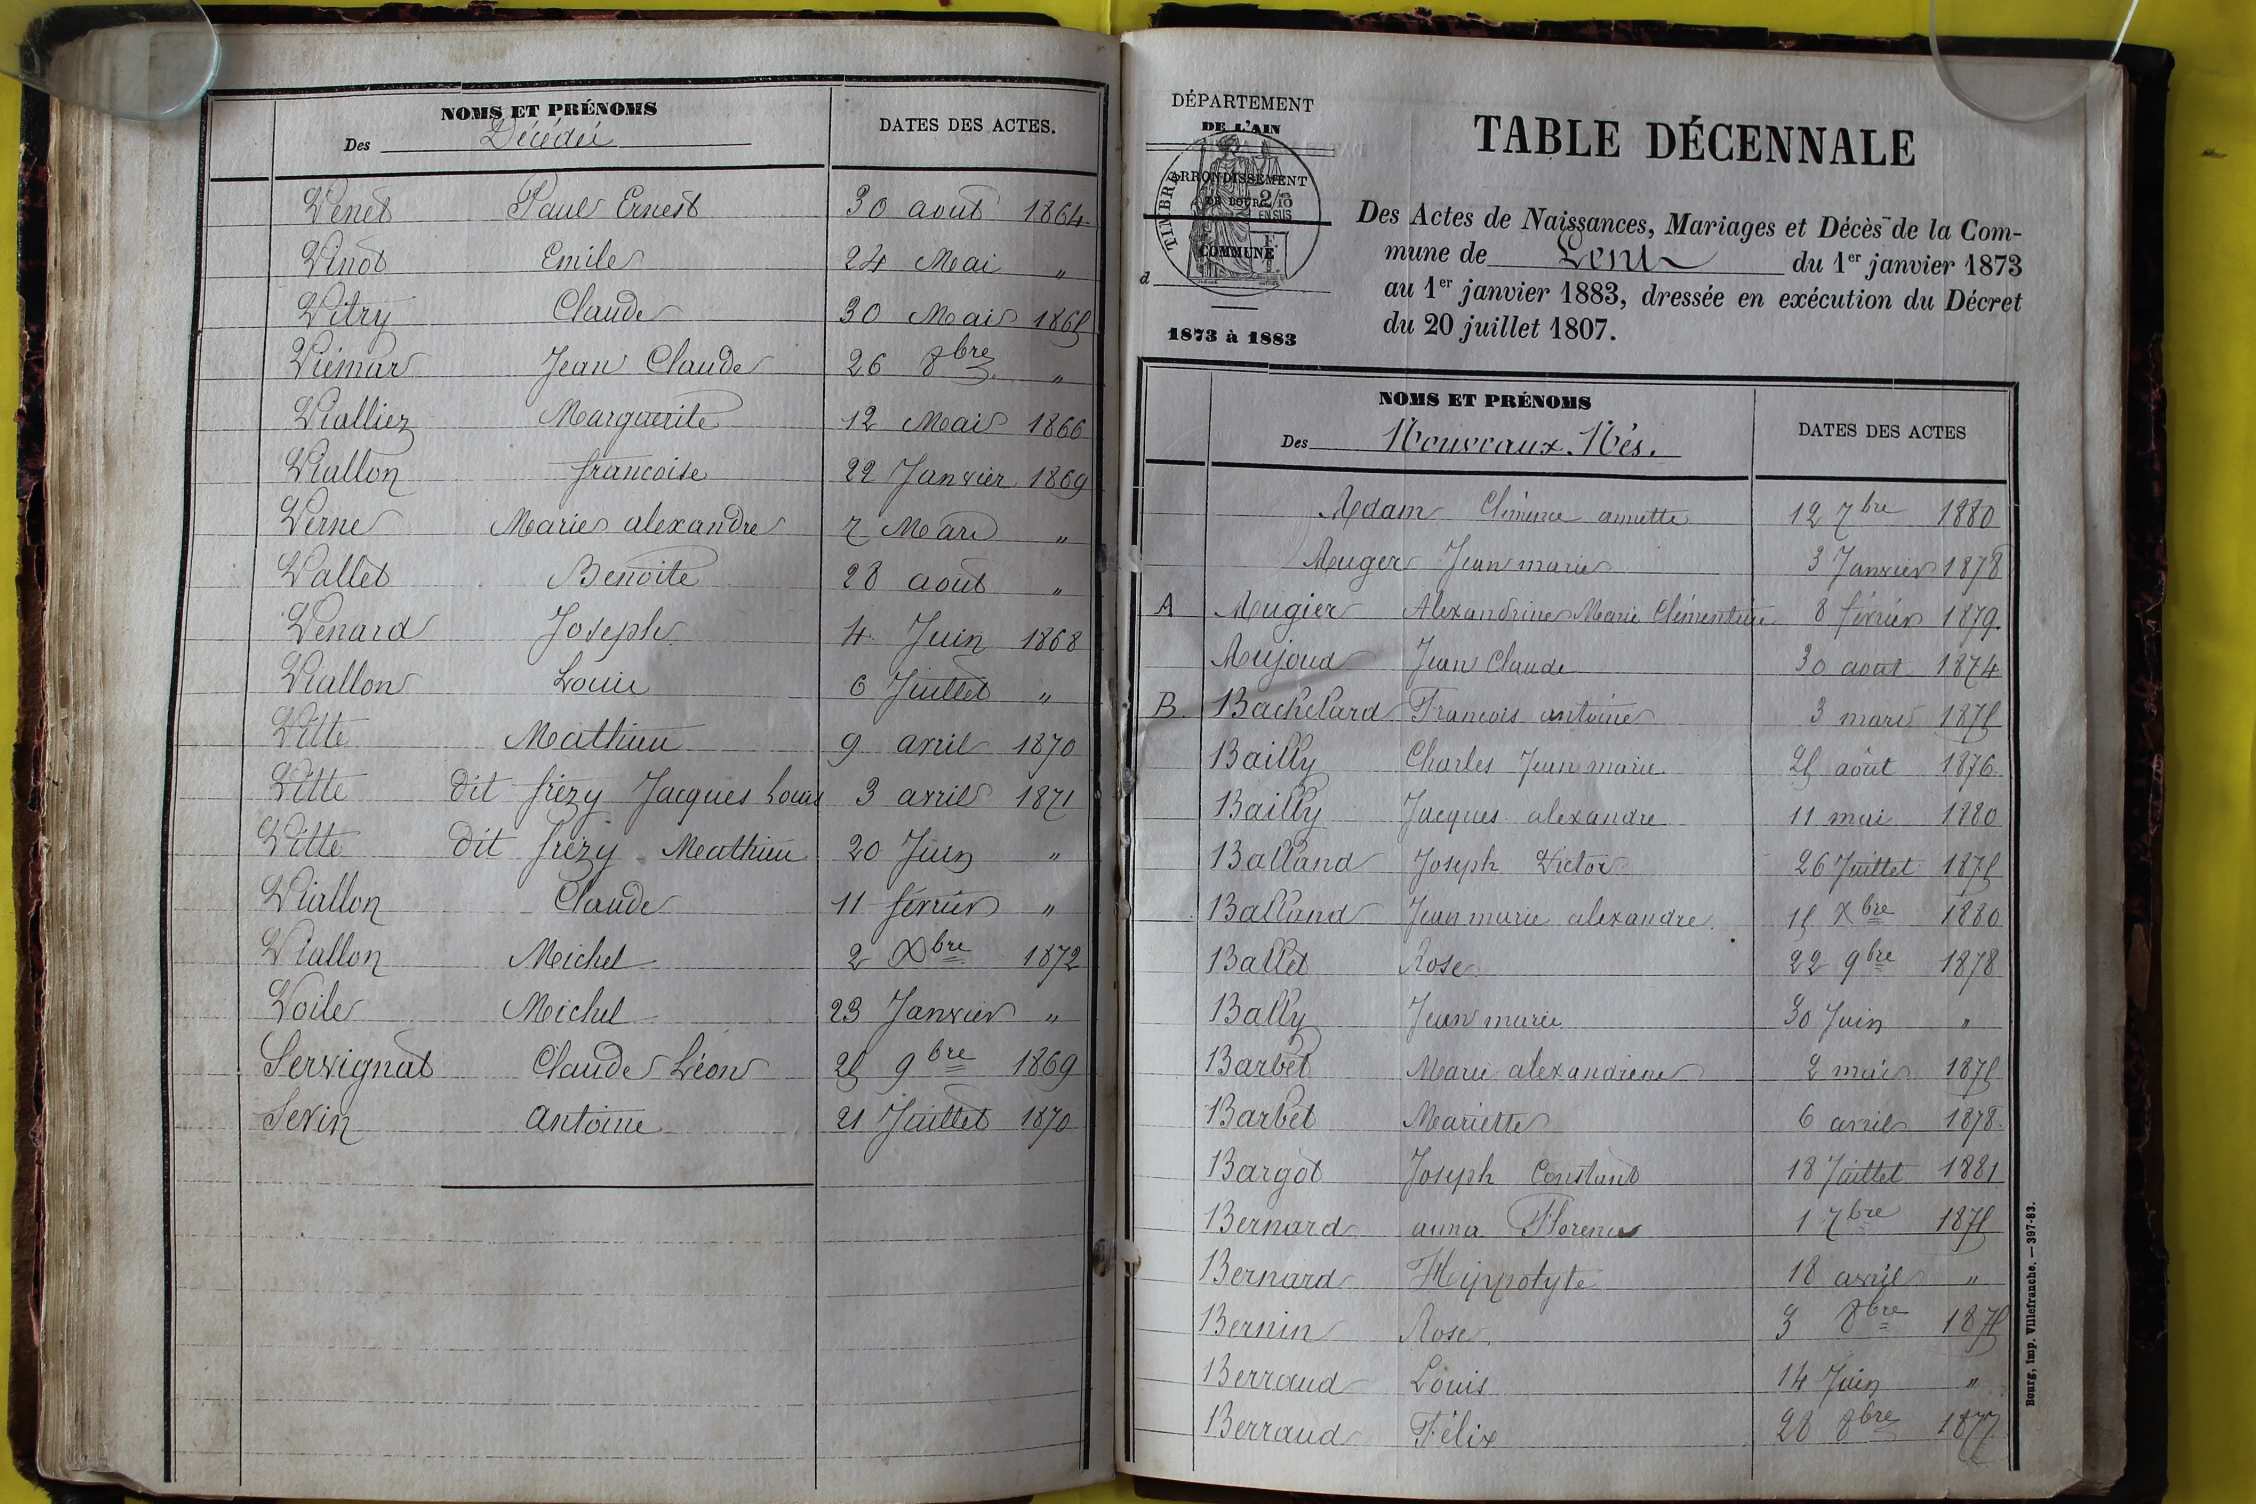 NOMS ET PRÉNOMS
Des Décédés
DATES DES ACTES.
Venet Paul Ernest 30 aout 1864
Vinot Emile 24 Mai "
Vitry Claude 30 Mai 1865
Viémar Jean Claude 26 8bre "
Vialliez Marguerite 12 Mai 1866
Viallon francoise 22 Janvier 1869
Verne Marie alexandre 7 Mars "
Vallet Benoite 28 aout "
Venard Joseph 4 Juin 1868
Viallon Louis 6 Juillet "
Vitte Mathieu 9 avril 1870
Vitte dit frézy Jacques Louis 3 avril 1871
Vitte dit frézy Mathieu 20 Juin "
Viallon Claude 11 février "
Viallon Michel 2 Xbre 1872
Voile Michel 23 Janvier "
Servignat Claude Léon 25 9bre 1869
Sevin antoine 21 Juillet 1870
DÉPARTEMENT
DE L'AIN
ARRONDISSEMENT
DE BOURG
COMMUNE
d
1873 à 1883
TIMBRE
2/10
EN SUS
TABLE DÉCENNALE
Des Actes de Naissances, Mariages et Décès de la Com-
mune de Lent du 1er janvier 1873
au 1er janvier 1883, dressée en exécution du Décret
du 20 juillet 1807.
NOMS ET PRÉNOMS
Des Nouveaux-Nés.
DATES DES ACTES
Adam Clémence annette 12 7bre 1880
Auger Jean marie 3 Janvier 1878
A Augier Alexandrine Marie Clémentine 8 février 1879.
Aujoud Jean Claude 30 aout 1874
B Bachelard Francois antoine 3 mars 1875
Bailly Charles Jean marie 25 août 1876
Bailly Jacques alexandre 11 mai 1880
Balland Joseph Victor 26 Juillet 1875
Balland Jean marie alexandre. 15 Xbre 1880
Ballet Rose 22 9bre 1878
Bally Jean marie 30 Juin "
Barbet Marie alexandrine 2 mai 1875
Barbet Mariette 6 avril 1878.
Bargot Joseph Constant 18 Juillet 1881
Bernard anna Florence 1 7bre 1875
Bernard Hippolyte 18 avril "
Bernin Rose 3 8bre 1875
Berraud Louis 14 Juin "
Berraud Félix 28 8bre 1877
Bourg, imp. Villefranche. — 397-83.